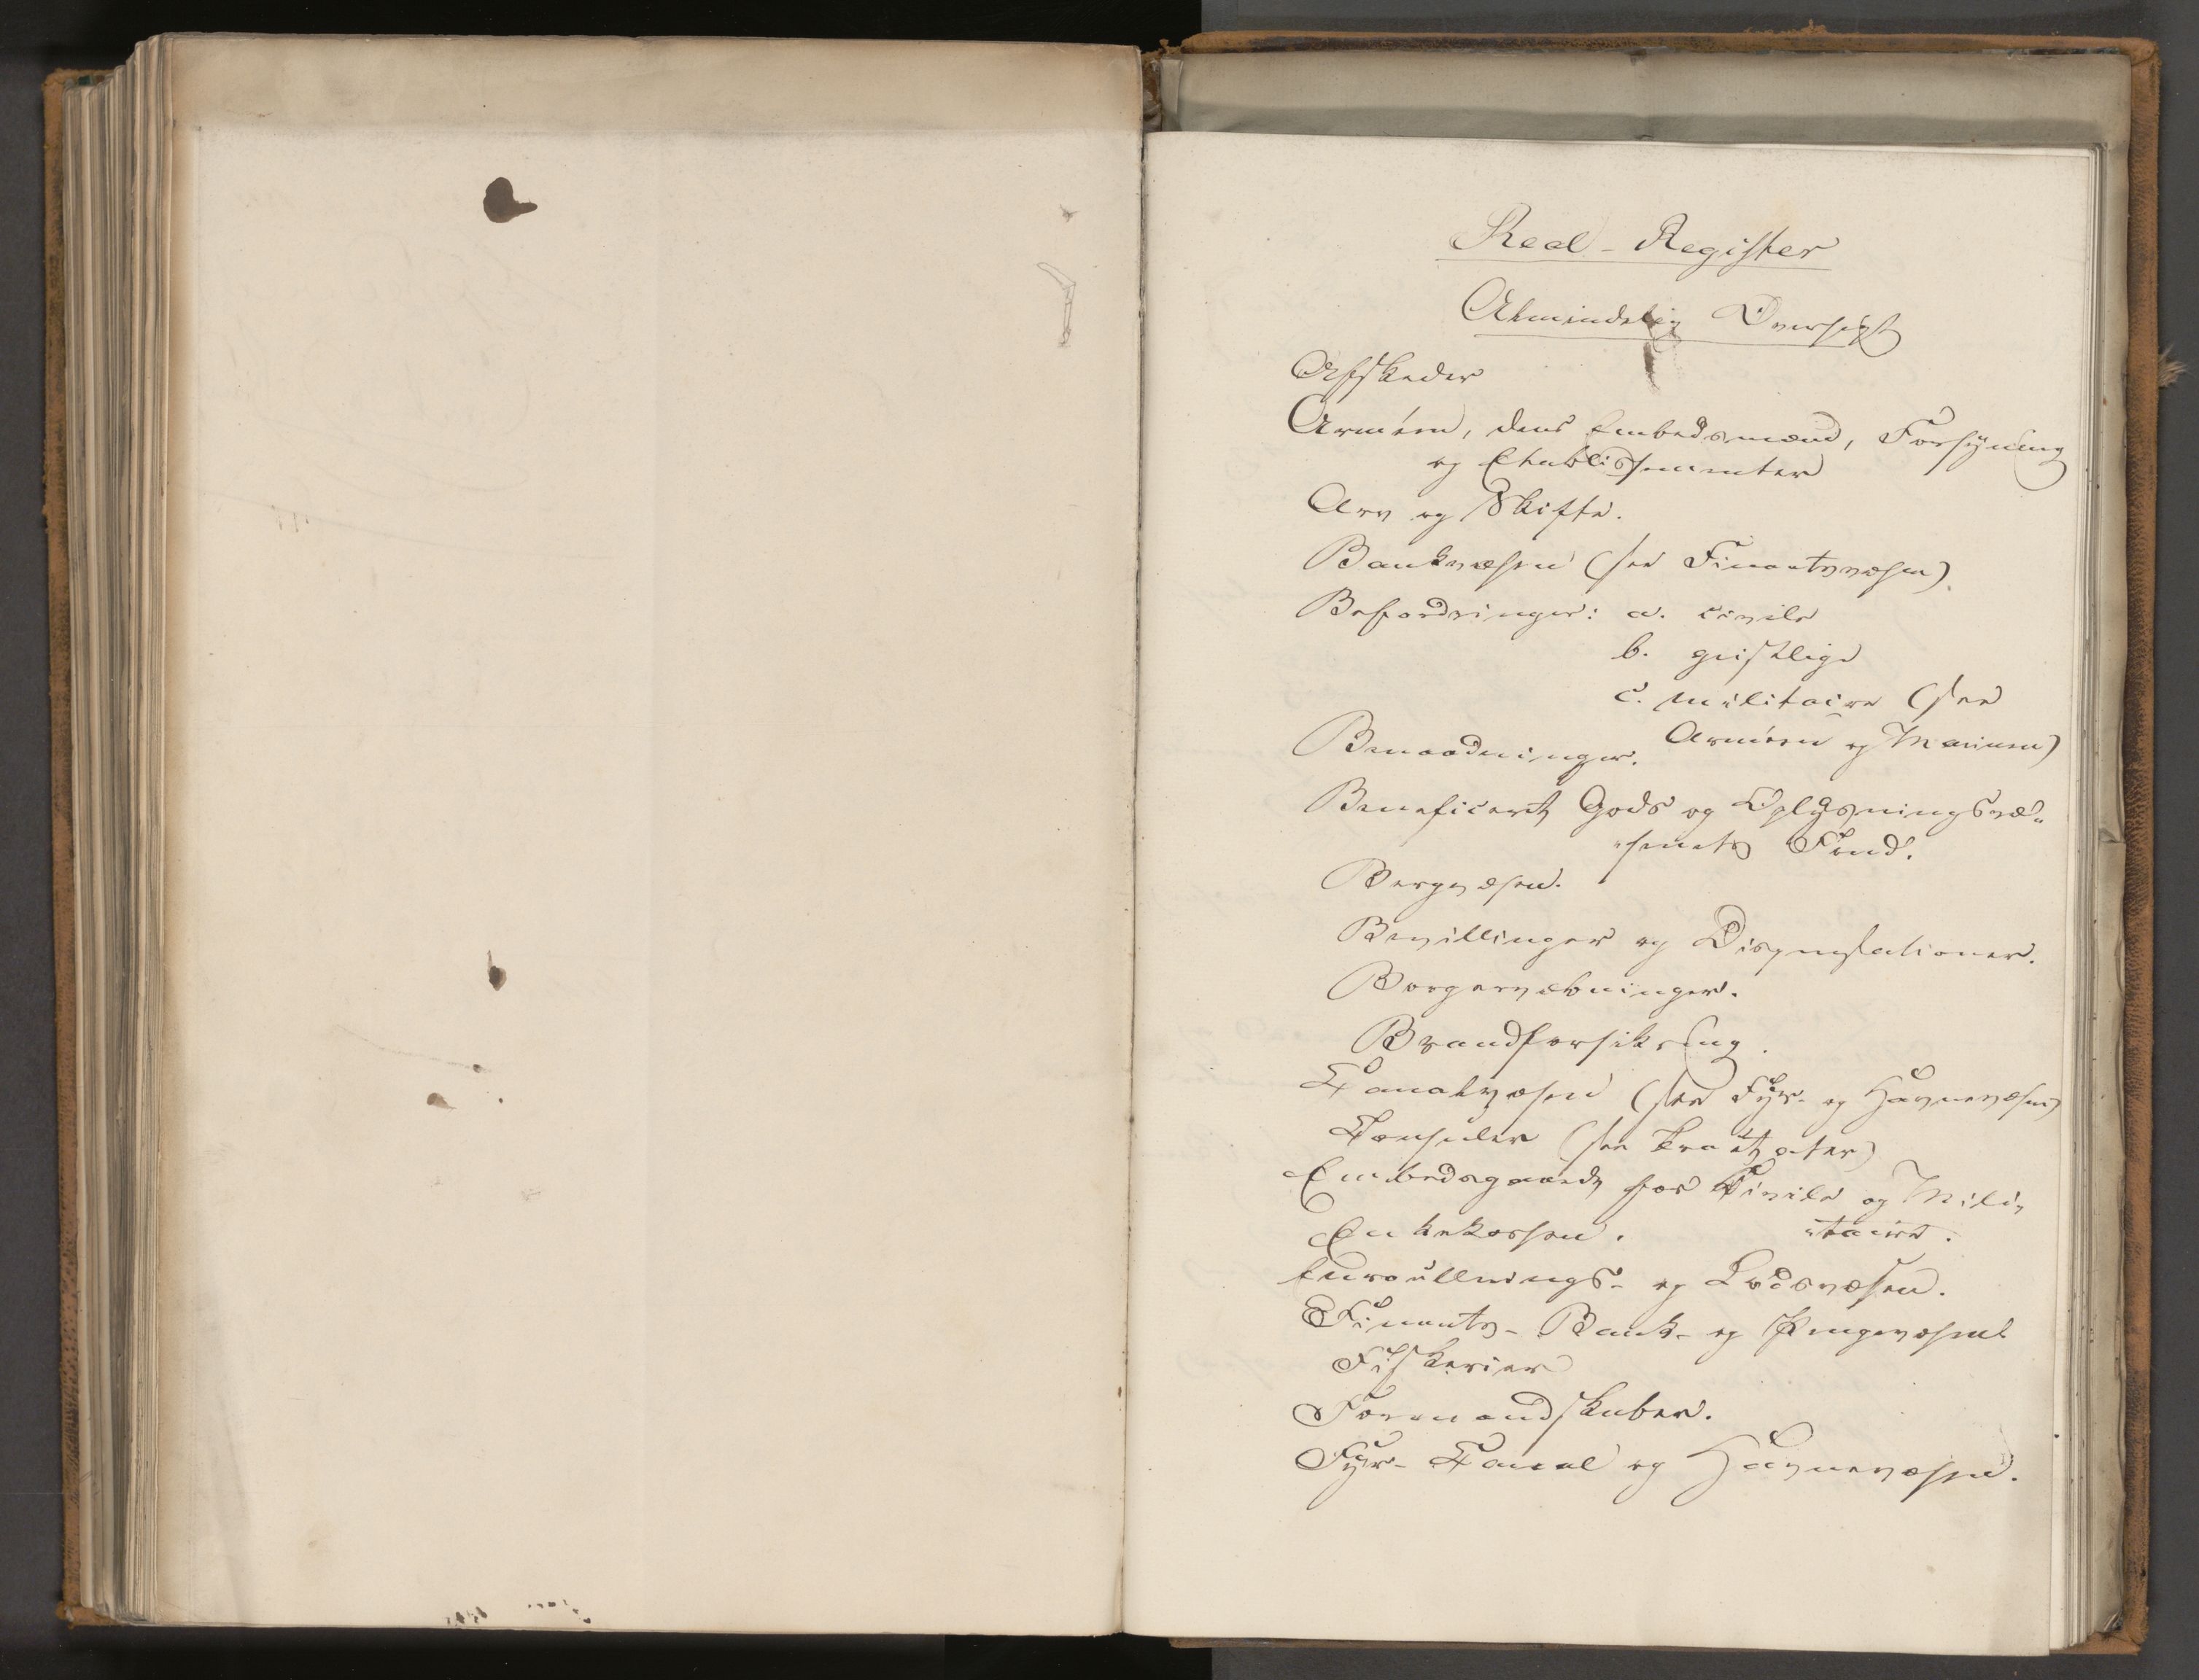 Real-Register
Almindelig Oversigt
Afskeder
Arméen, dens Embedsmænd, Forsyning
og Etablissementer
Arv og Skifte.
Bankvæsen (see Finantsvæsen).
Befordringer: a. civile
b. geistlige
c. militaire (see
Arméen og Marinen)
Benaadninger.
Beneficeret Gods og Oplysningsvæ„
„senets Fond.
Bergvæsen.
Bevillinger og Dispensationer.
Borgervæbninger.
Brandforsikring.
Canalvæsen (see Fyr- og Havnevæsen)
Consuler (see Tractater)
Embedsgaarde for Civile og Mili„
„taire.
Enkekassen.
Enroullerings- og Lodsvæsen.
Finants- Bank- og Pengevæsenet
Fiskerier
Formandskaber.
Fyr- Canal og Havnevæsen.